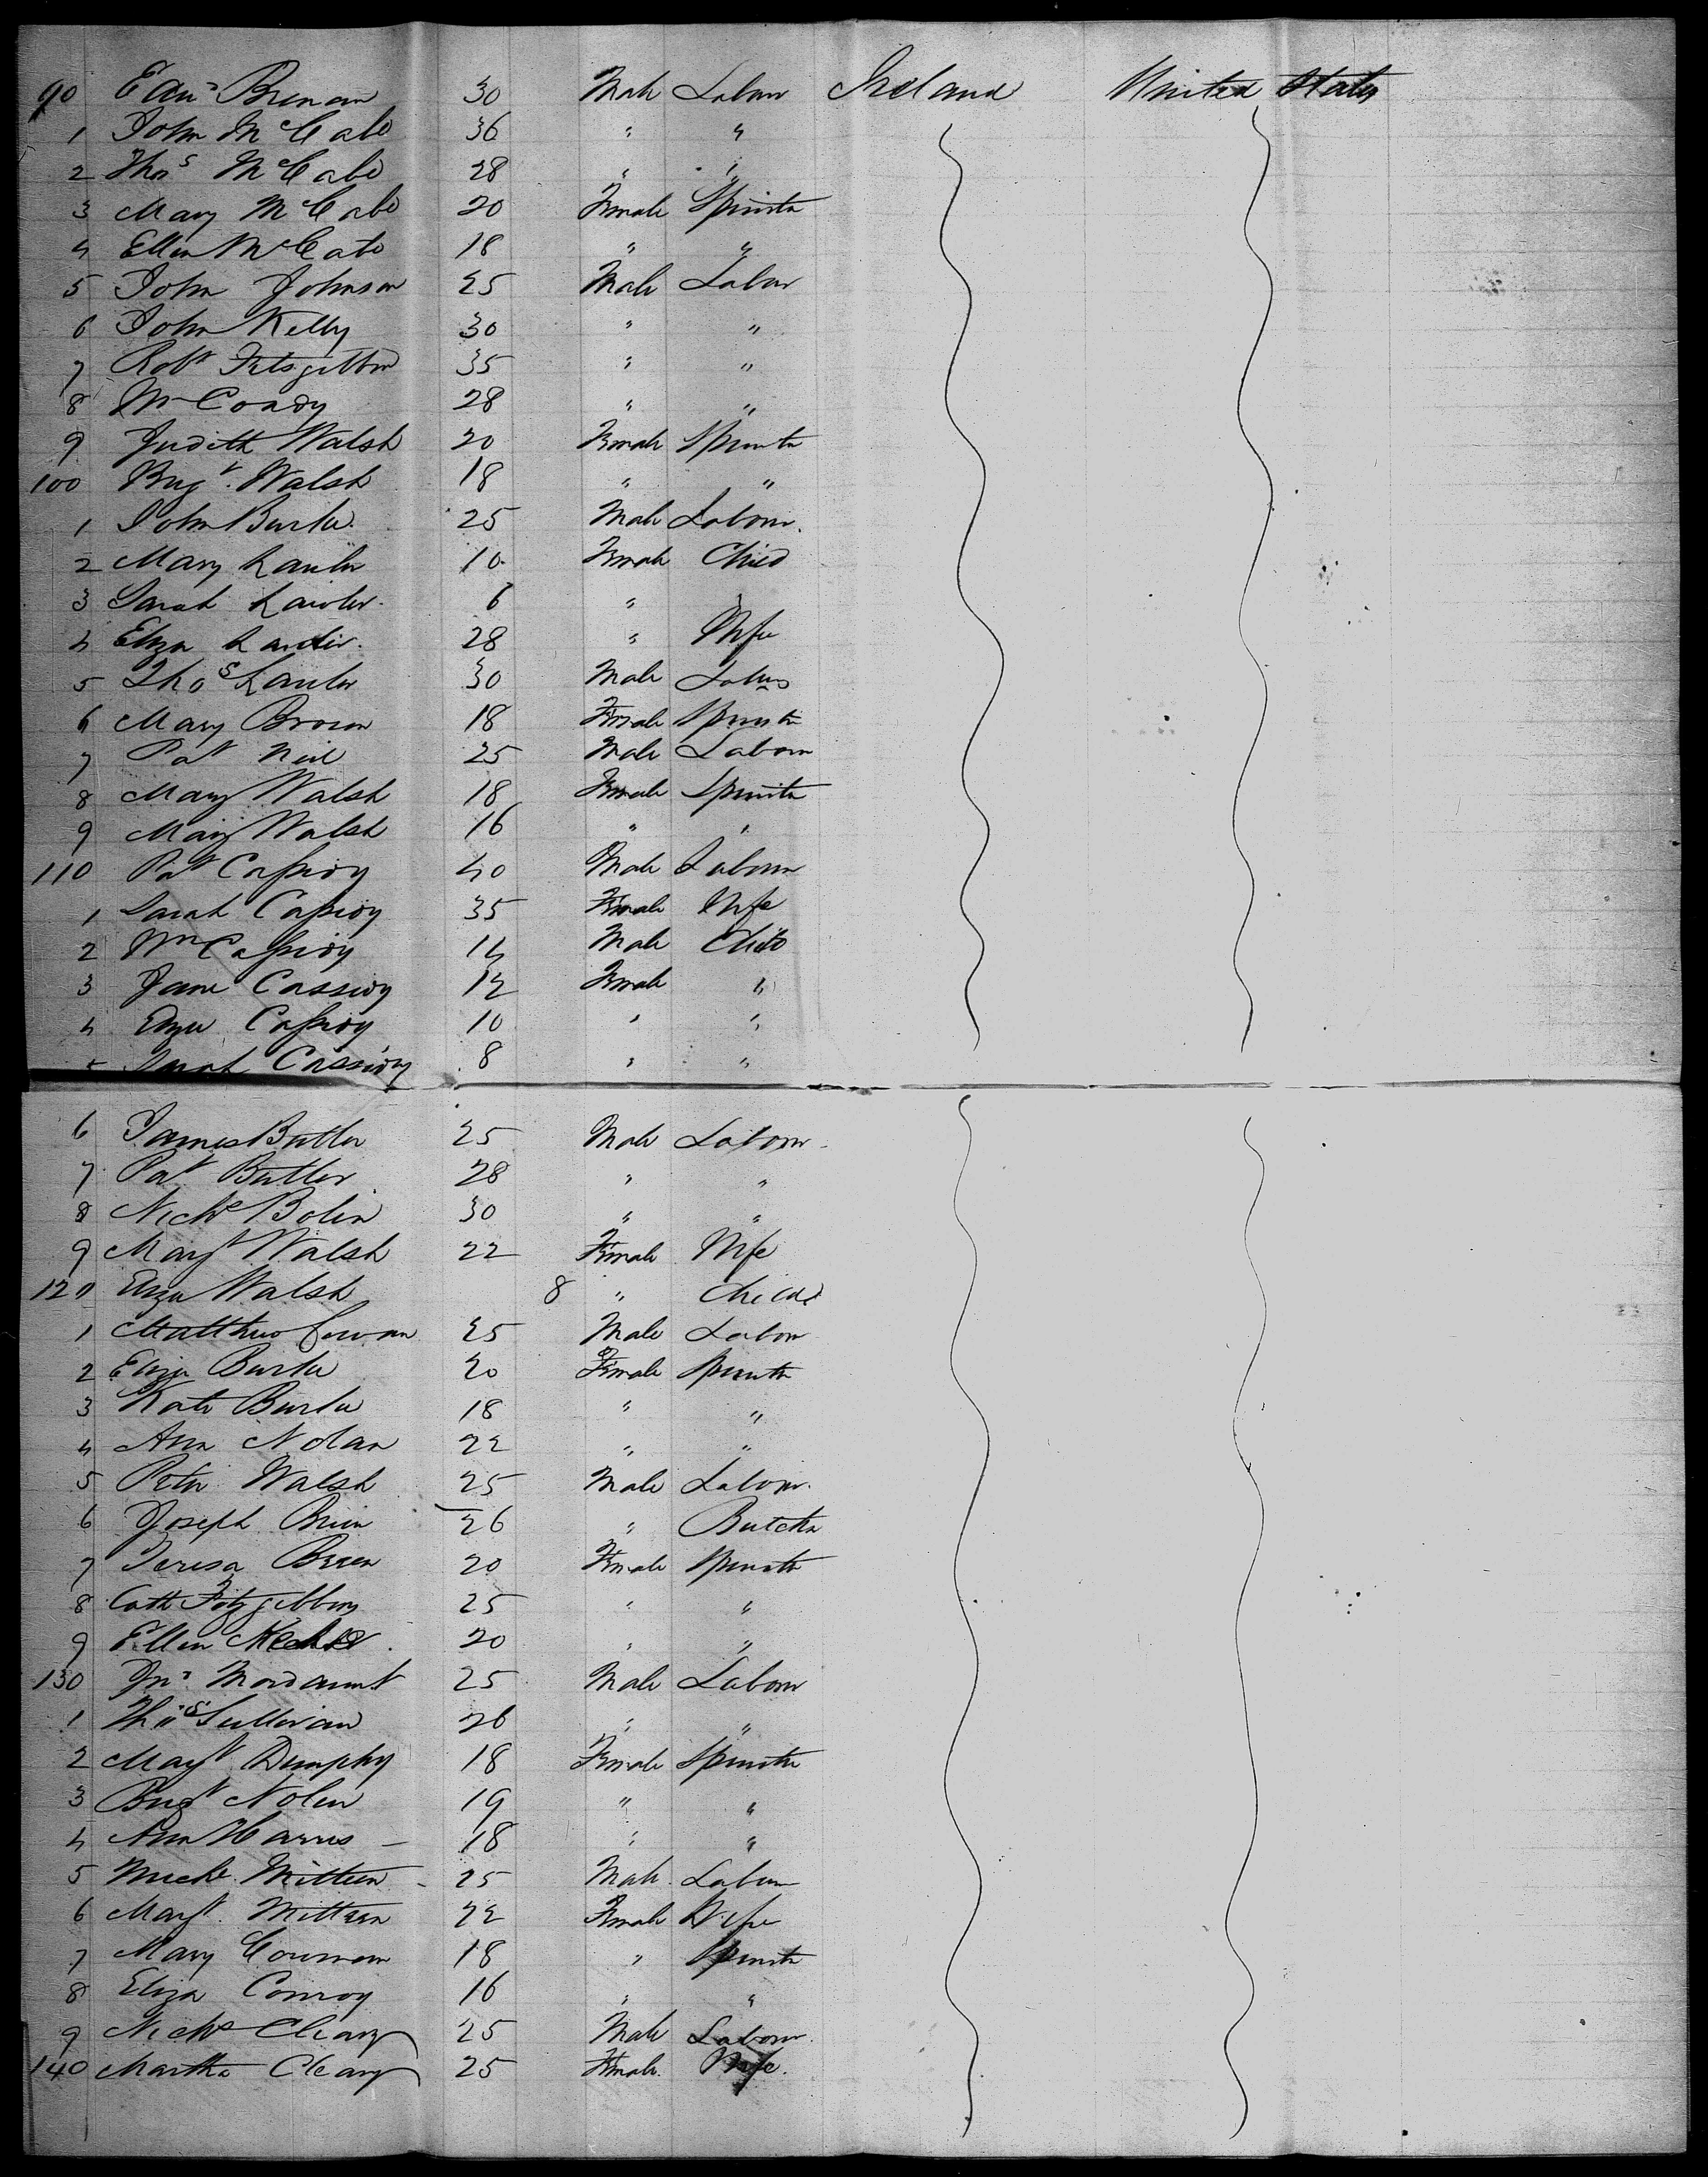 90 Edwd Brenan 30 Male Labour Ireland United States
1 John McCabe 36 " "
2 Thos McCabe 28 " "
3 Mary McCabe 20 Female Spinster
4 Ellen McCabe 18 " "
5 John Johnson 25 Male Labour
6 John Kelly 30 " "
7 Robt Fitsgibbon 35 " "
8 Wm Condy 28 " "
9 Judith Walsh 20 Female Spinster
100 Brigt. Walsh 18 " "
1 John Burke 25 Male Labour.
2 Mary Lawler 10 Female Child
3 Sarah Lawler. 6 "
4 Eliza Lawler. 28 " Wife
5 Thos Lawler 30 Male Labour
6 Mary Brown 18 Female Spinster
7 Pat Neil 25 Male Labour
8 Mary Walsh 18 Female Spinster
9 Mary Walsh 16 " "
110 Pat Cassidy 40 Male Labour
1 Sarah Cassidy 35 Female Wife
2 Wm Cassidy 14 Male Child
3 Jane Cassidy 12 Female "
4 Eliza Cassidy 10 " "
5 Sarah Cassidy 8 " "
6 James Butler 25 Male Labour
7 Pat Butler 28 " "
8 Nichs Bolin 30 " "
9 Margt Walsh 22 Female Wife
120 Eliza Walsh 8 " Child
1 Matthew Cowan 25 Male Labour
2 Eliza Burke 20 Female Spinster
3 Kate Burke 18 " "
4 Ann Nolan 22 " "
5 Peter Walsh 25 Male Labour.
6 Joseph Brien 26 " Butcher
7 Teresa Brien 20 Female Spinster
8 Cath Fitzgibbon 25 " "
9 Ellen 20 " "
130 Jno Mordaunt 25 Male Labour
1 Thos Sullivan 26 " "
2 Margt Dunphy 18 Female Spinster
3 Brigt Nolan 19 " "
4 Ann Harris 18 " "
5 Michl Mitten 25 Male Labour
6 Margt. Mitten 22 Female Wife
7 Mary Cowman 18 " Spinster
8 Eliza Conroy 16 " "
9 Nichs Cleary 25 Male Labour.
140 Martha Cleary 25 Female. Wife.